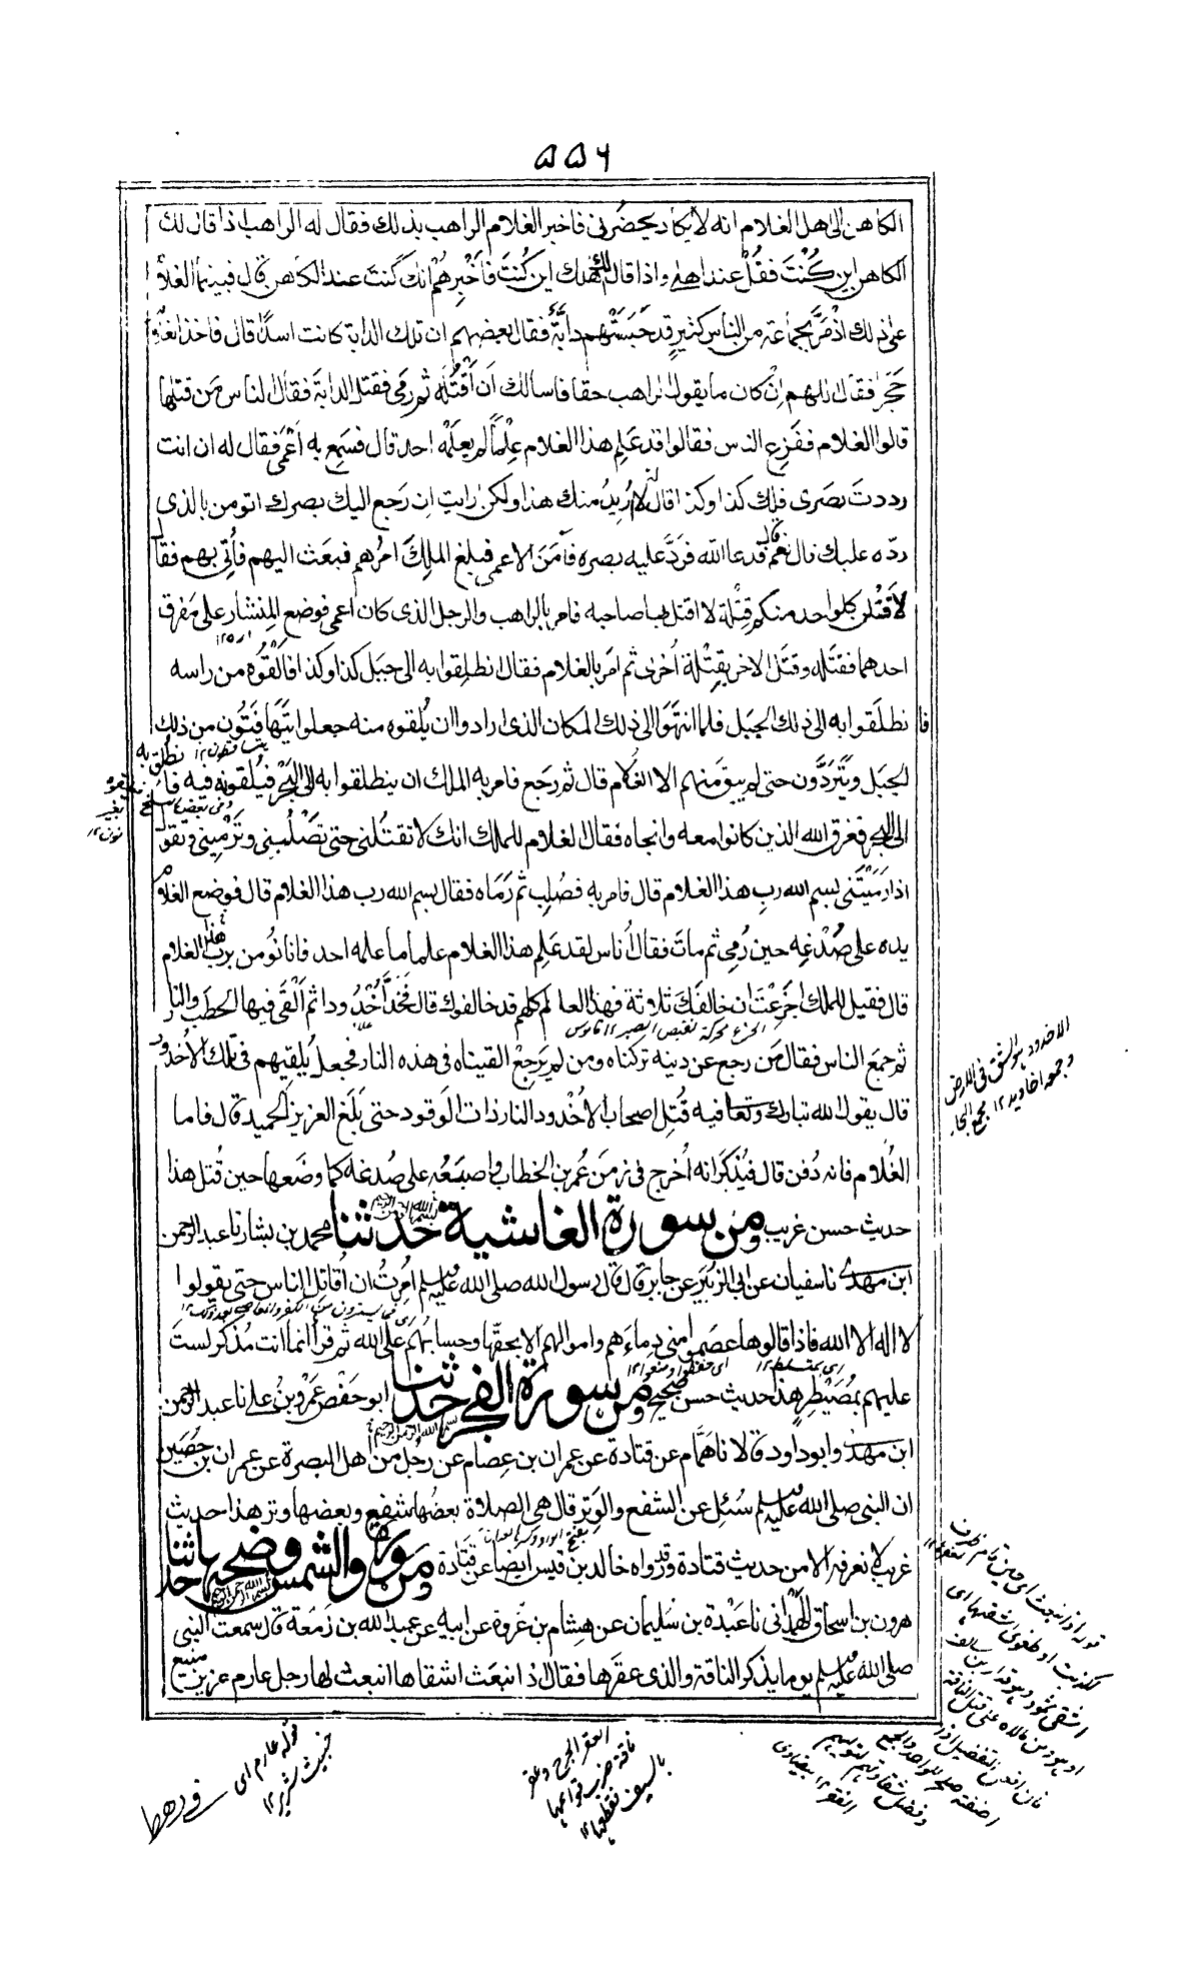 ۵۵۶
الكاهن الى اهل الغلام انه لا يكاد يحضُرنى فاخبر الغلام الراهب بذلك فقال له الراهب اذا قال لك
الكاهن اين كُنْتَ فقُلْ عند اهلى واذا قال لك اهلك اين كُنتَ فَاَخْبِرهُمْ انك كنتَ عند الكاهن قال فبينما الغلام
على ذلك اذ مَرَّ بجماعة من الناس كثيرٍ قد حَبَسَتْهم دابَّةٌ فقال بعضهم ان تلك الدابة كانت اسدًا قال فاخذ الغلام
حَجَرًا فقال اللهم اِنْ كان ما يقول الراهب حقا فاسالك اَن اَقْتُلَه ثم رَمى فقتل الدابة فقال الناس مَن قتلها
قالوا الغلام ففَزِع الناس فقالوا قد عَلِم هذا الغلام عِلْمًا لم يعلَمْه احد قال فسَمِع به اَعْمى فقال له ان انت
رددتَ بصَرى فلك كذا وكذا قال له لا اُرِيدُ منك هذا ولكن ارايت اِن رَجع اليك بصرك اتومن بالذى
ردّه عليك قال نعم قال فدعا الله فَرَدَّ عليه بصره فآمَنَ الاعمى فبلغ المَلِكَ امرُهم فبعث اليهم فأُتِى بهم فقال
لاَقْتُلَن كل واحد منكم قِتْلةً لا اقتل بها صاحبه فامر بالراهب والرجل الذى كان اعمى فوضع المِنشار على مَفرِق
احدهما فقتَله وقتَل الاخر بقِتْلة اُخرى ثم امَر بالغلام فقال انطلِقوا به الى جبَل كذا وكذا فاَلْقُوه من راسه
فانطلَقوا به الى ذلك الجبَل فلما انتَهَوْا الى ذلك المكان الذى ارادوا ان يُلقوه منه جعلوا يتَهافَتُون من ذلك
الجبَل ويتَرَدَّون حتى لم يبق منهم الا الغلام قال ثم رجَع فامر به الملك ان ينطلقوا به الى البَحْر فيُلقونه فيه فانطُلِق به
الى البحر فغرق الله الذين كانوا معه وانجاه فقال الغلام للملك انك لا تقتُلنى حتى تَصْلُبنِى وتَرْمِينى وتقول
اذا رَمَيْتَنى بسم الله ربِ هذا الغلام قال فامر به فصُلِب ثم رَمَاه فقال بسم الله رب هذا الغلام قال فوضع الغلام
يده على صُدْغِه حين رُمِى ثم ماتَ فقال اُناس لقد عَلِم هذا الغلام علما ما علمه احد فانا نُؤمن برب هذا الغلام
قال فقيل للملك اَجَزِعْتَ ان خالفَكَ ثلاثة فهذا العالم كلهم قد خالفوك قال فخَدَّ اُخْدُودا ثم اَلْقٰى فيها الحَطب والنار
الجزع محركة نقيض الصبر ١٢ قاموس
ثم جمَع الناس فقال مَن رجع عن دينه تركناه ومن لم يَرجِعْ القيناه فى هذه النار فجعل يُلقِيهم فى تلك الأُخدود
قال يقول الله تبارك وتعالى فيه قُتِل اصحاب الاُخْدُود النار ذات الوَقود حتى بَلَغ العزيز الحميد قال فاما
الغُلام فانه دُفن قال فيُذكَر انه اُخرج فى زمَن عُمر بن الخطاب واصبَعُه على صُدغه كما وضَعها حين قُتل هذا
حديث حسن غريب ومن سورة الغاشية بسم الله الرحمن الرحيم حدثنا محمد بن بشار نا عبد الرحمن
ابن مهدى نا سفيان عن ابى الزُبَيْر عن جابر قال قال رسول الله صلى الله عليه وسلم اُمِرتُ ان اُقاتل الناس حتى يقولوا
لا اله الا الله فاذا قالوها عصَموا منى دِماءَهم واموالهم الا بحقها وحسابُهم على الله ثم قرا انما انت مُذكر لستَ
اى حفظوا ومنعوا ١٢
اى بمتسلط ١٢
عليهم بمُصَيْطِرٍ هذا حديث حسن صحيح ومن سورة الفجر بسم الله الرحمن الرحيم حدثنا ابو حَفْص عَمْرو بنُ على نا عبد الرحمن
ابن مهدى وابو داود قالا نا هَمَّام عن قتادة عن عمران بن عِصام عن رجل من اهل البصرة عن عمران بن حُصَين
ان النبى صلى الله عليه وسلم سُئِل عن الشفع والوَتر قال هى الصلاة بعضُها شفع وبعضها وتر هذا حديث
غريب لا نعرفه الا من حديث قتادة وقد رواه خالد بن قيس ايضا عن قتادة ومن سورة والشمس وضحٰها بسم الله الرحمن الرحيم حدثنا
هٰرون بن اسحاق الهَمْدانى نا عَبْدة بن سُليمان عن هِشام بن عُروة عن ابيه عن عبد الله بن زَمْعة قال سمعت النبى
صلى الله عليه وسلم يوما يذكر الناقة والذى عقَرها فقال اذ انبعَث اشقاها انبعث لها رجل عارم عزيز منيع
الاخدود هو الشق فى الارض
وجمعه اخاديد ١٢ مجمع البحار
العقر الجرح وعقر
ناقة ضرب قوائمها
بالسيف فقطعها ١٢
قوله عارم اى
خبيث شرير ١٢
فى رهطه